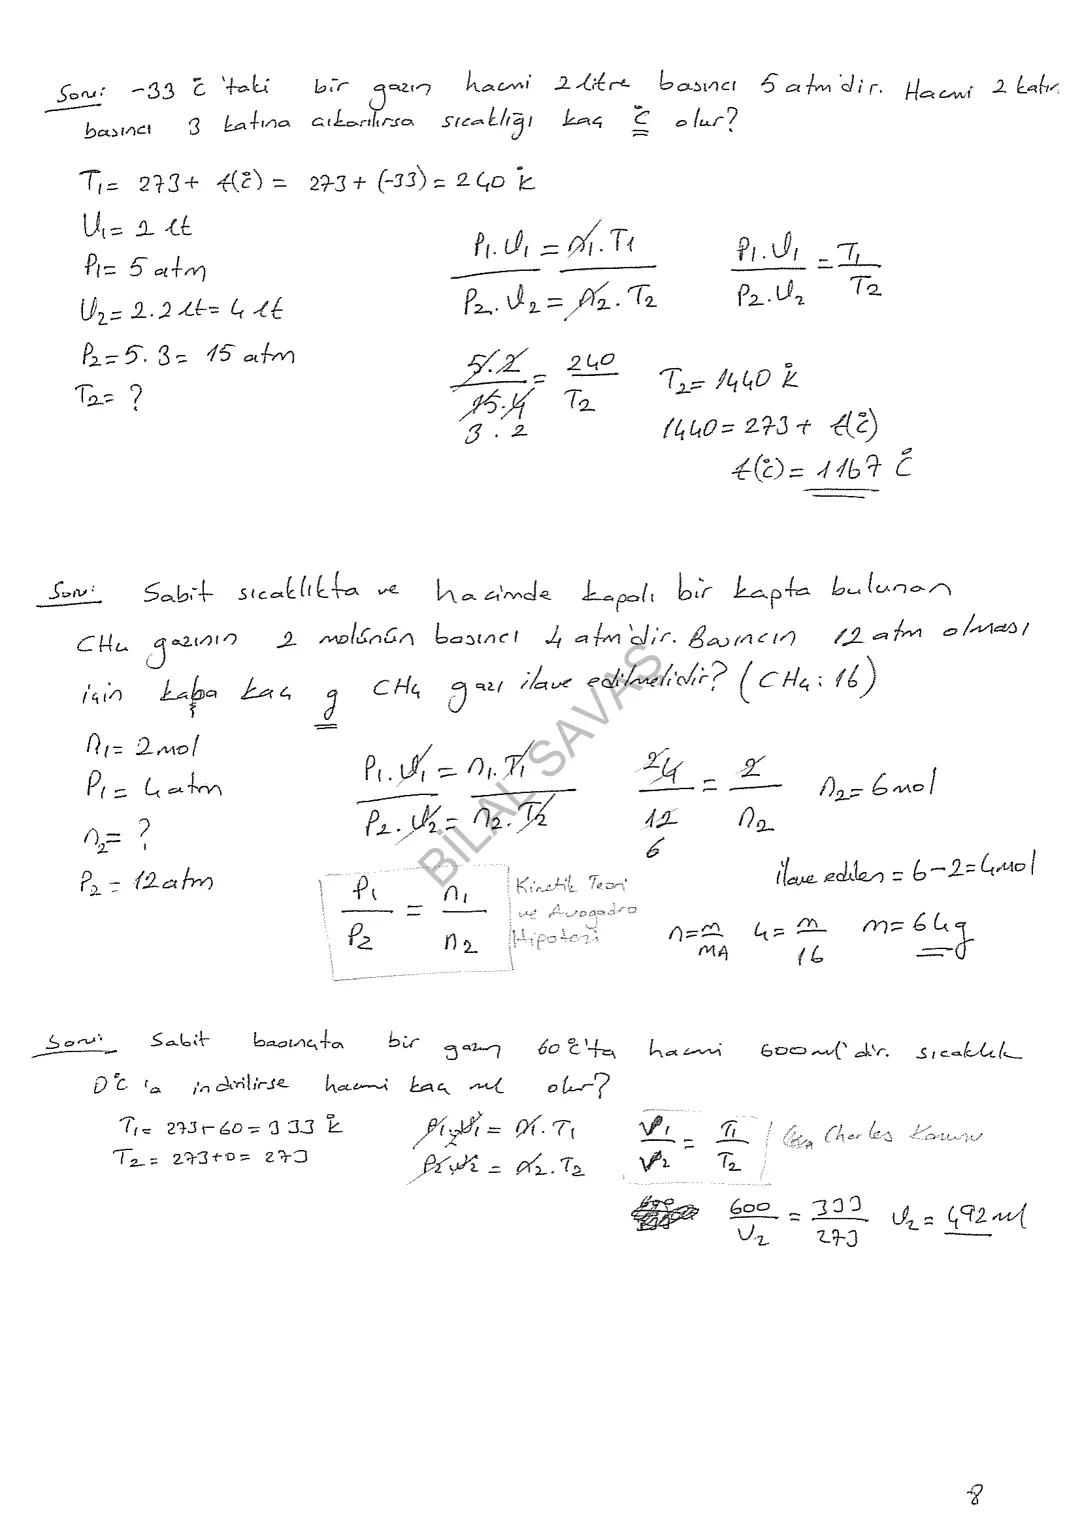 Soru: -33 °C 'taki bir gazın hacmi 2 litre basıncı 5 atm'dir. Hacmi 2 katın
basıncı 3 katına çıkarılırsa sıcaklığı kaç °C olur?
T1 = 273 + t(°C) = 273 + (-33) = 240 °K
V1 = 2 lt
P1 = 5 atm
V2 = 2.2 lt = 4 lt
P2 = 5.3 = 15 atm
T2 = ?
P1.V1 = n1.T1
P2.V2 = n2.T2
P1.V1 / P2.V2 = T1 / T2
5.2 / 15.4 = 240 / T2
3.2
T2 = 1440 °K
1440 = 273 + t(°C)
t(°C) = 1167 °C
Soru: Sabit sıcaklıkta ve hacimde kapalı bir kapta bulunan
CH4 gazının 2 molünün basıncı 4 atm'dir. Basıncın 12 atm olması
için kaba kaç g CH4 gazı ilave edilmelidir? (CH4: 16)
n1 = 2 mol
P1 = 4 atm
n2 = ?
P2 = 12 atm
P1.V1 = n1.T1
P2.V2 = n2.T2
2 4 / 12 = 2 / n2
6
n2 = 6 mol
ilave edilen = 6 - 2 = 4 mol
P1 / P2 = n1 / n2
Kinetik Teori
ve Avogadro
Hipotezi
n = m / MA
4 = m / 16
m = 64 g
BİLAL SAVAS
Soru: Sabit basınçta bir gazın 60 °C'ta hacmi 600 ml'dir. sıcaklık
0 °C 'a indirilirse hacmi kaç ml olur?
T1 = 273 + 60 = 333 °K
T2 = 273 + 0 = 273
P1.V1 = n1.T1
P2.V2 = n2.T2
V1 / V2 = T1 / T2
Charles Kanunu
600 / V2 = 333 / 273
V2 = 492 ml
8